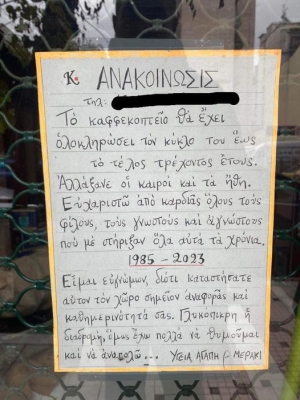 Κ. ΑΝΑΚΟΙΝΩΣΙΣ
τηλ:
Τὸ καφφεκοπτεῖο θὰ ἔχει
ὁλοκληρώσει τὸν κύκλο του ἕως
τὸ τέλος τρέχοντος ἔτους.
Ἀλλάξανε οἱ καιροὶ καὶ τὰ ἤθη.
Εὐχαριστῶ ἀπὸ καρδιᾶς ὅλους τοὺς
φίλους, τοὺς γνωστοὺς καὶ ἀγνώστους
ποὺ μὲ στήριξαν ὅλα αὐτὰ τὰ χρόνια.
1985 - 2023
Εἶμαι εὐγνώμων, διότι καταστήσατε
αὐτὸν τὸν χῶρο σημεῖον ἀναφορᾶς καὶ
καθημερινότητά σας. Γλυκόπικρη ἡ
διαδρομή, ὅμως ἔχω πολλὰ νὰ θυμοῦμαι
καὶ νὰ ἀναπολῶ... ΥΓΕΙΑ ΑΓΑΠΗ ΜΕΡΑΚΙ